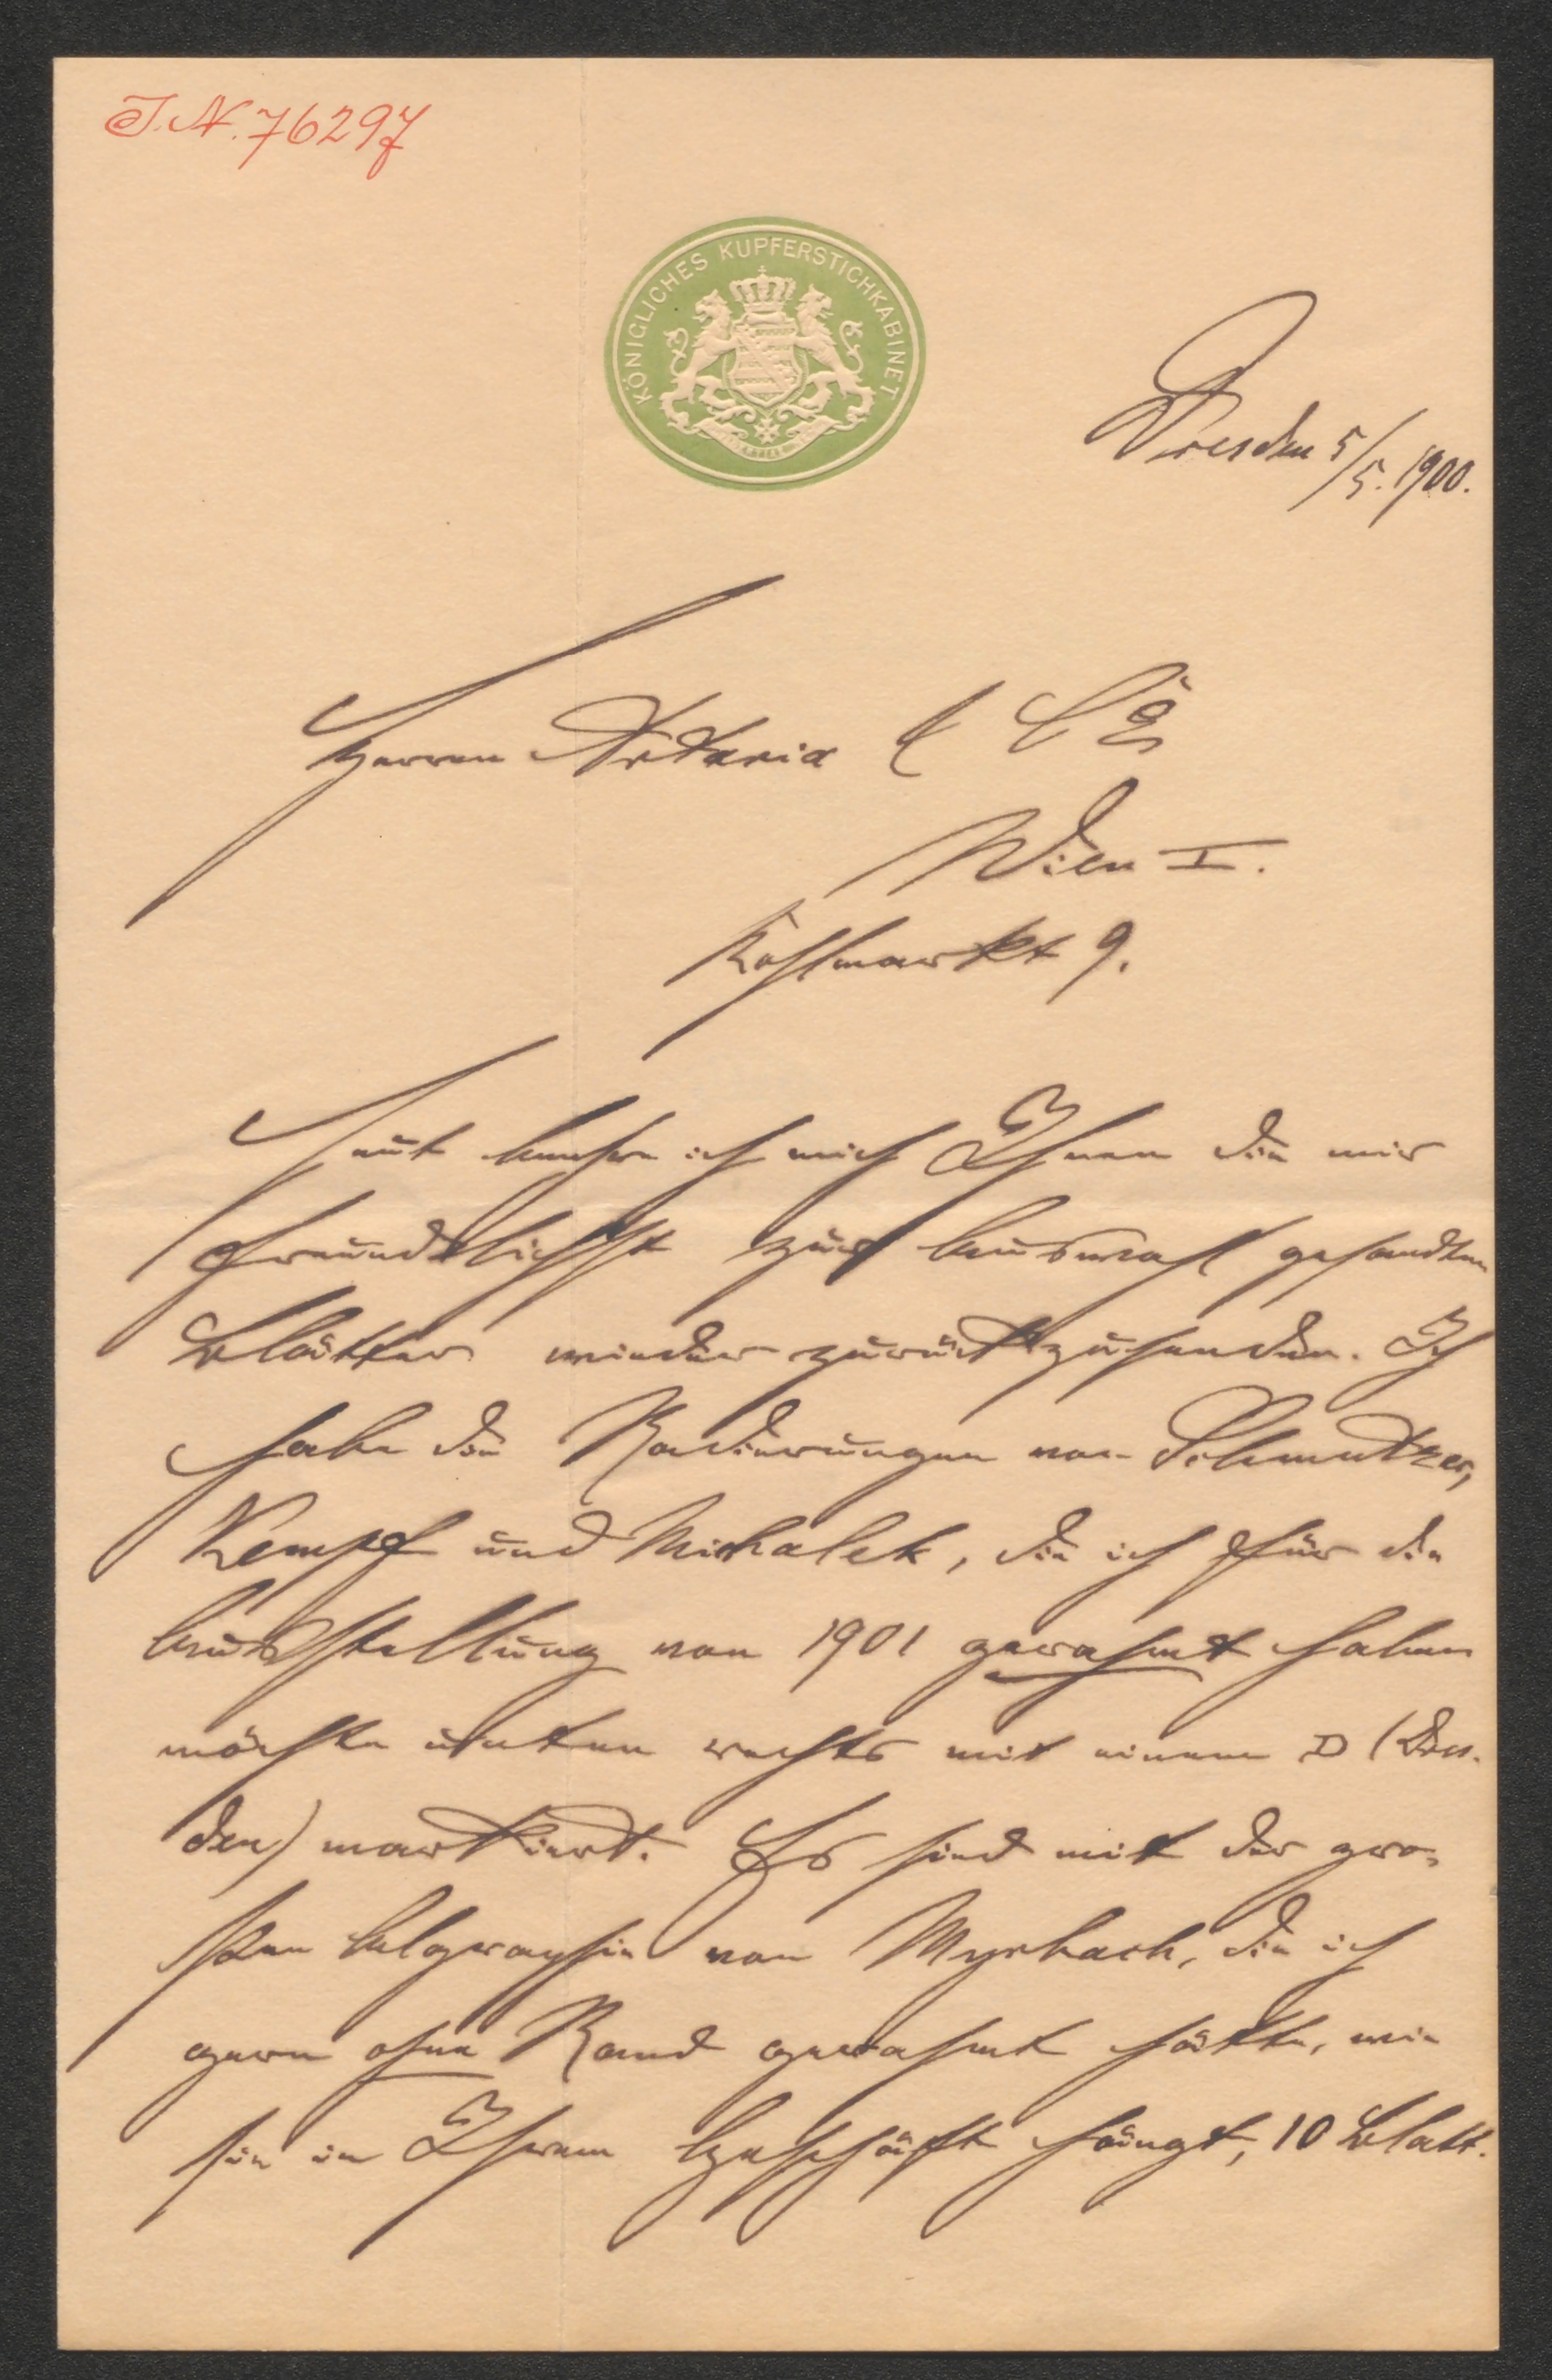 J.N. 76297
KÖNIGLICHES KUPFERSTICHKABINET
Dresden 5/5. 1900.
Herren Artaria & Co
Wien I.
Kohlmarkt 9.
Heut beehre ich mich Ihnen die mir
freundlichst zur Auswahl gesandten
Blätter wieder zurückzusenden. Ich
habe die Radierungen von Schmutzer,
Kempf und Michalek, die ich für die
Ausstellung von 1901 gerahmt haben
möchte unten rechts mit einem D (Dres-
den) markiert. Es sind mit der gro-
ßen Algraphie von Myrbach, die ich
gern ohne Rand gerahmt hätte, wie
sie in Ihrem Geschäft hängt, 10 Blatt.